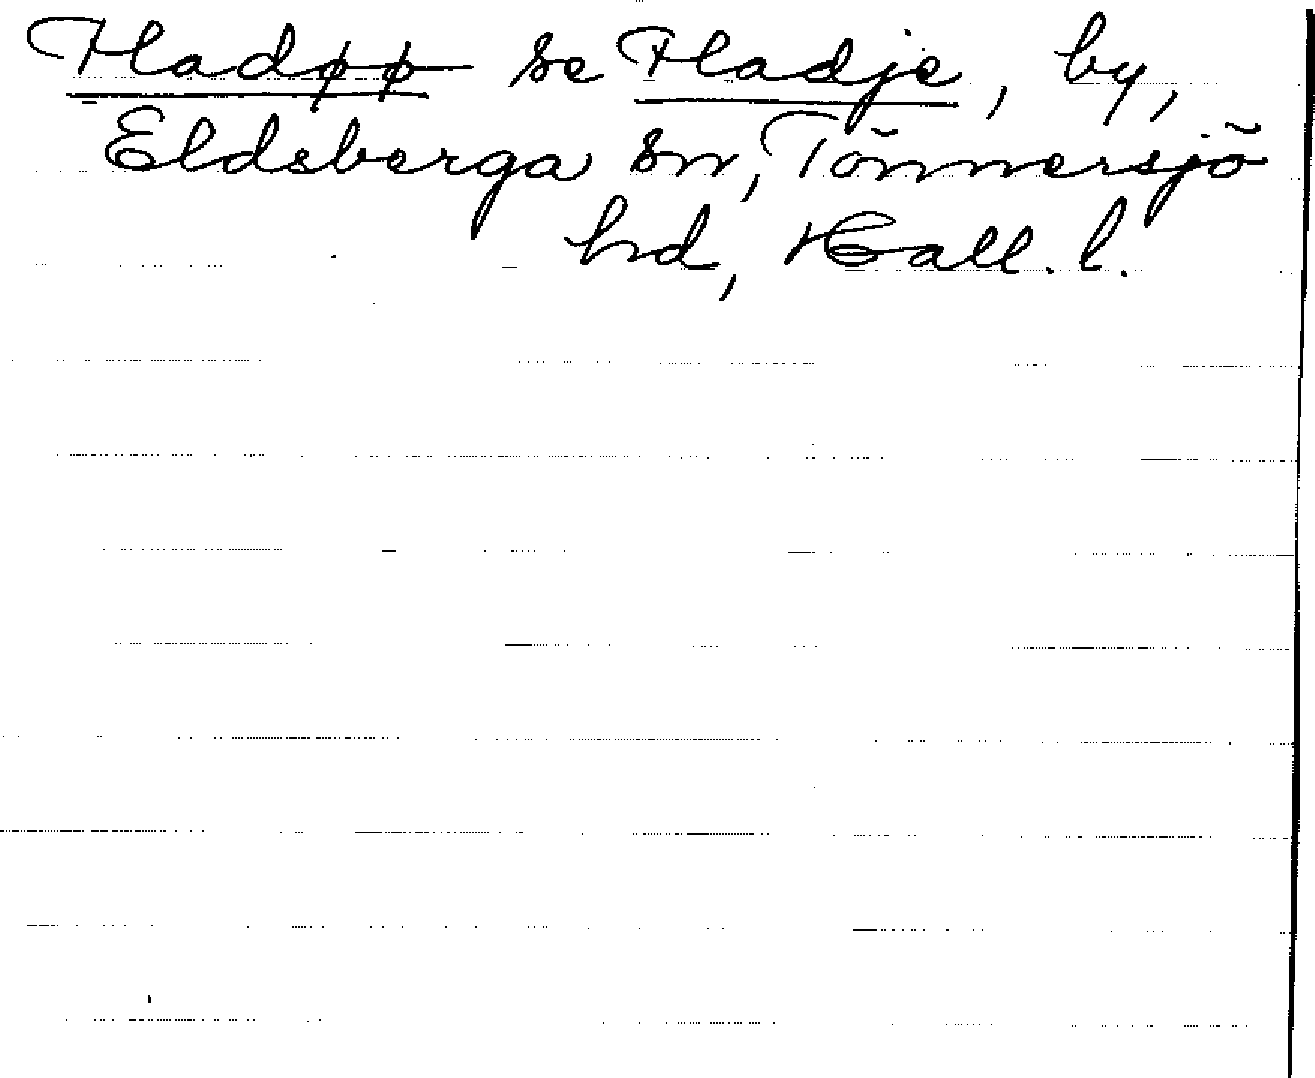 Fladøø se Fladje, by,
Eldsberga sn, Tönnersjö
hd, Hall. l.